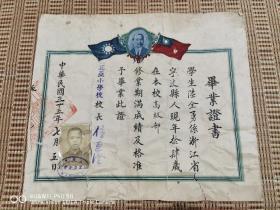 畢業證書
學生陸全勇係浙江省
寧波縣人現年拾肆歲
在本校高級部
修業期滿成績及格准
予畢業此證
小學校校長
中華民國三十五年七月 五日